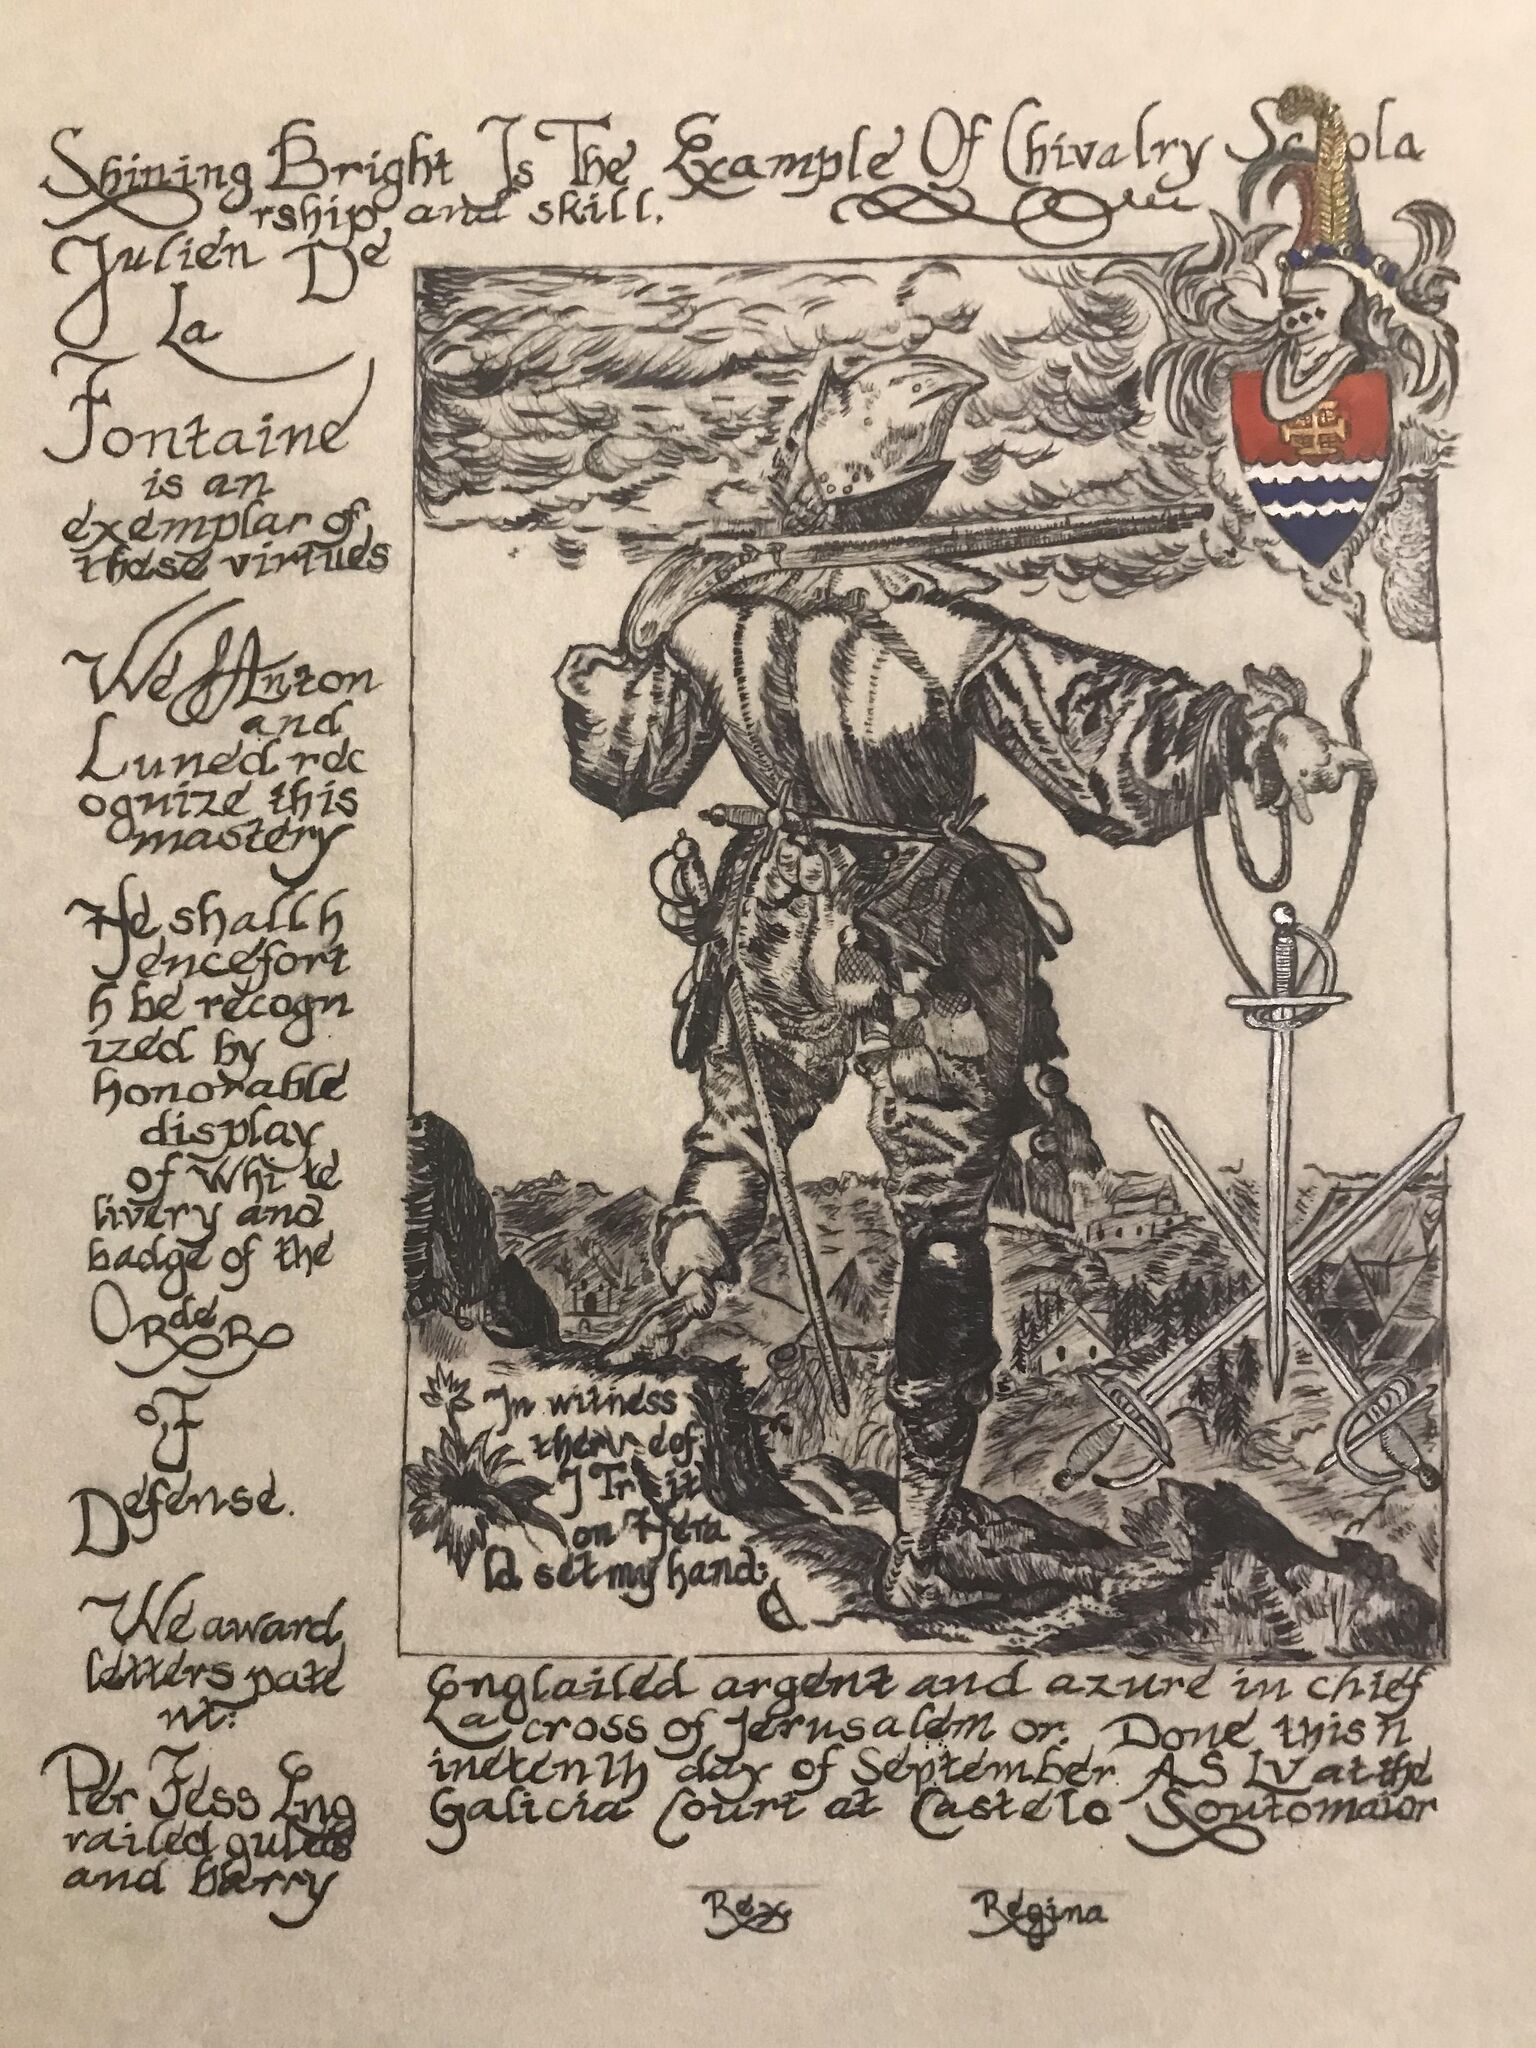 Shining Bright Is The Example Of Chivalry Schola
rship, and skill.
Julien De
La
Fontaine
is an
exemplar of
these virtues
We Anton
and
Luned rec
ognize this
mastery
He shall h
encefort
h be recogn
ized by
honorable
display
of White
livery and
badge of the
OrdeR
of
Defense.
We award
letters pate
nt:
Per Fess Eng
railed gules
and barry
In witness
I Trit
on Hera
ld set my hand:
Englailed argent and azure in chief
La cross of Jerusalem or. Done this n
inetenth day of September A S LV at the
Galicia Court at Castelo Soutomaior
Rex
Regina